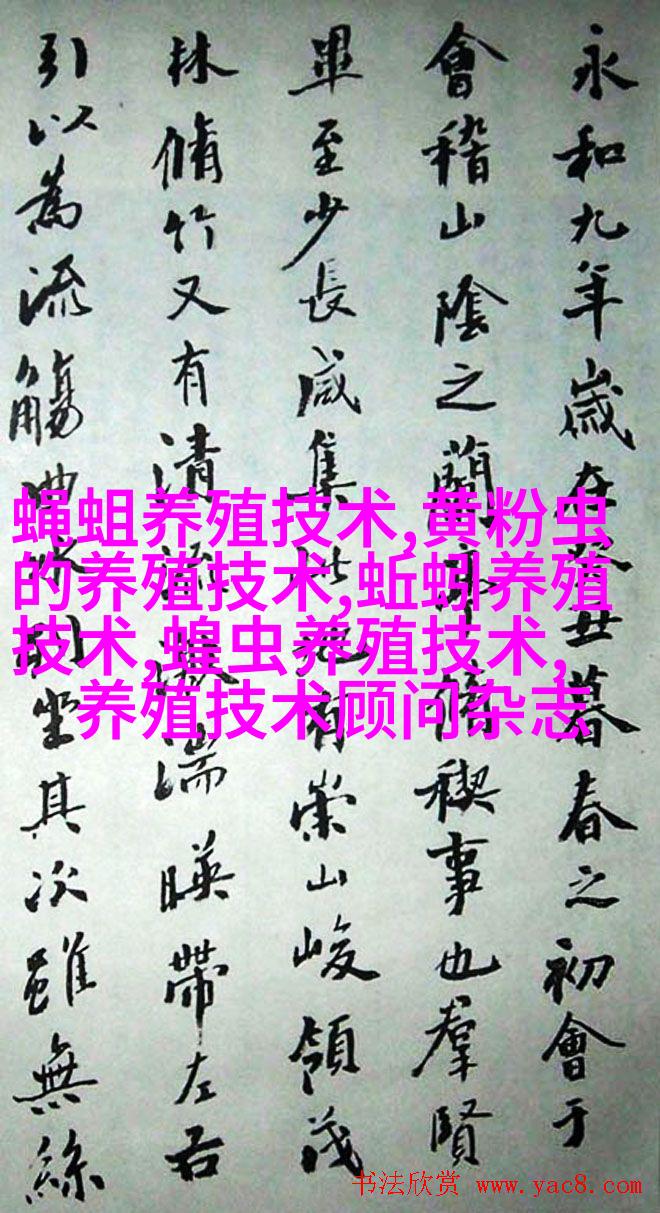 永和九年歲在癸丑暮春之初會于
會稽山陰之蘭亭脩稧事也羣賢
畢至少長咸集此地有崇山峻領茂
林脩竹又有清流激湍暎帶左右
引以為流觴曲水列坐其次雖無絲
蝇蛆养殖技术,黄粉虫
的养殖技术,蚯蚓养殖
技术,蝗虫养殖技术,
养殖技术顾问杂志
书法欣赏 www.yac8.com